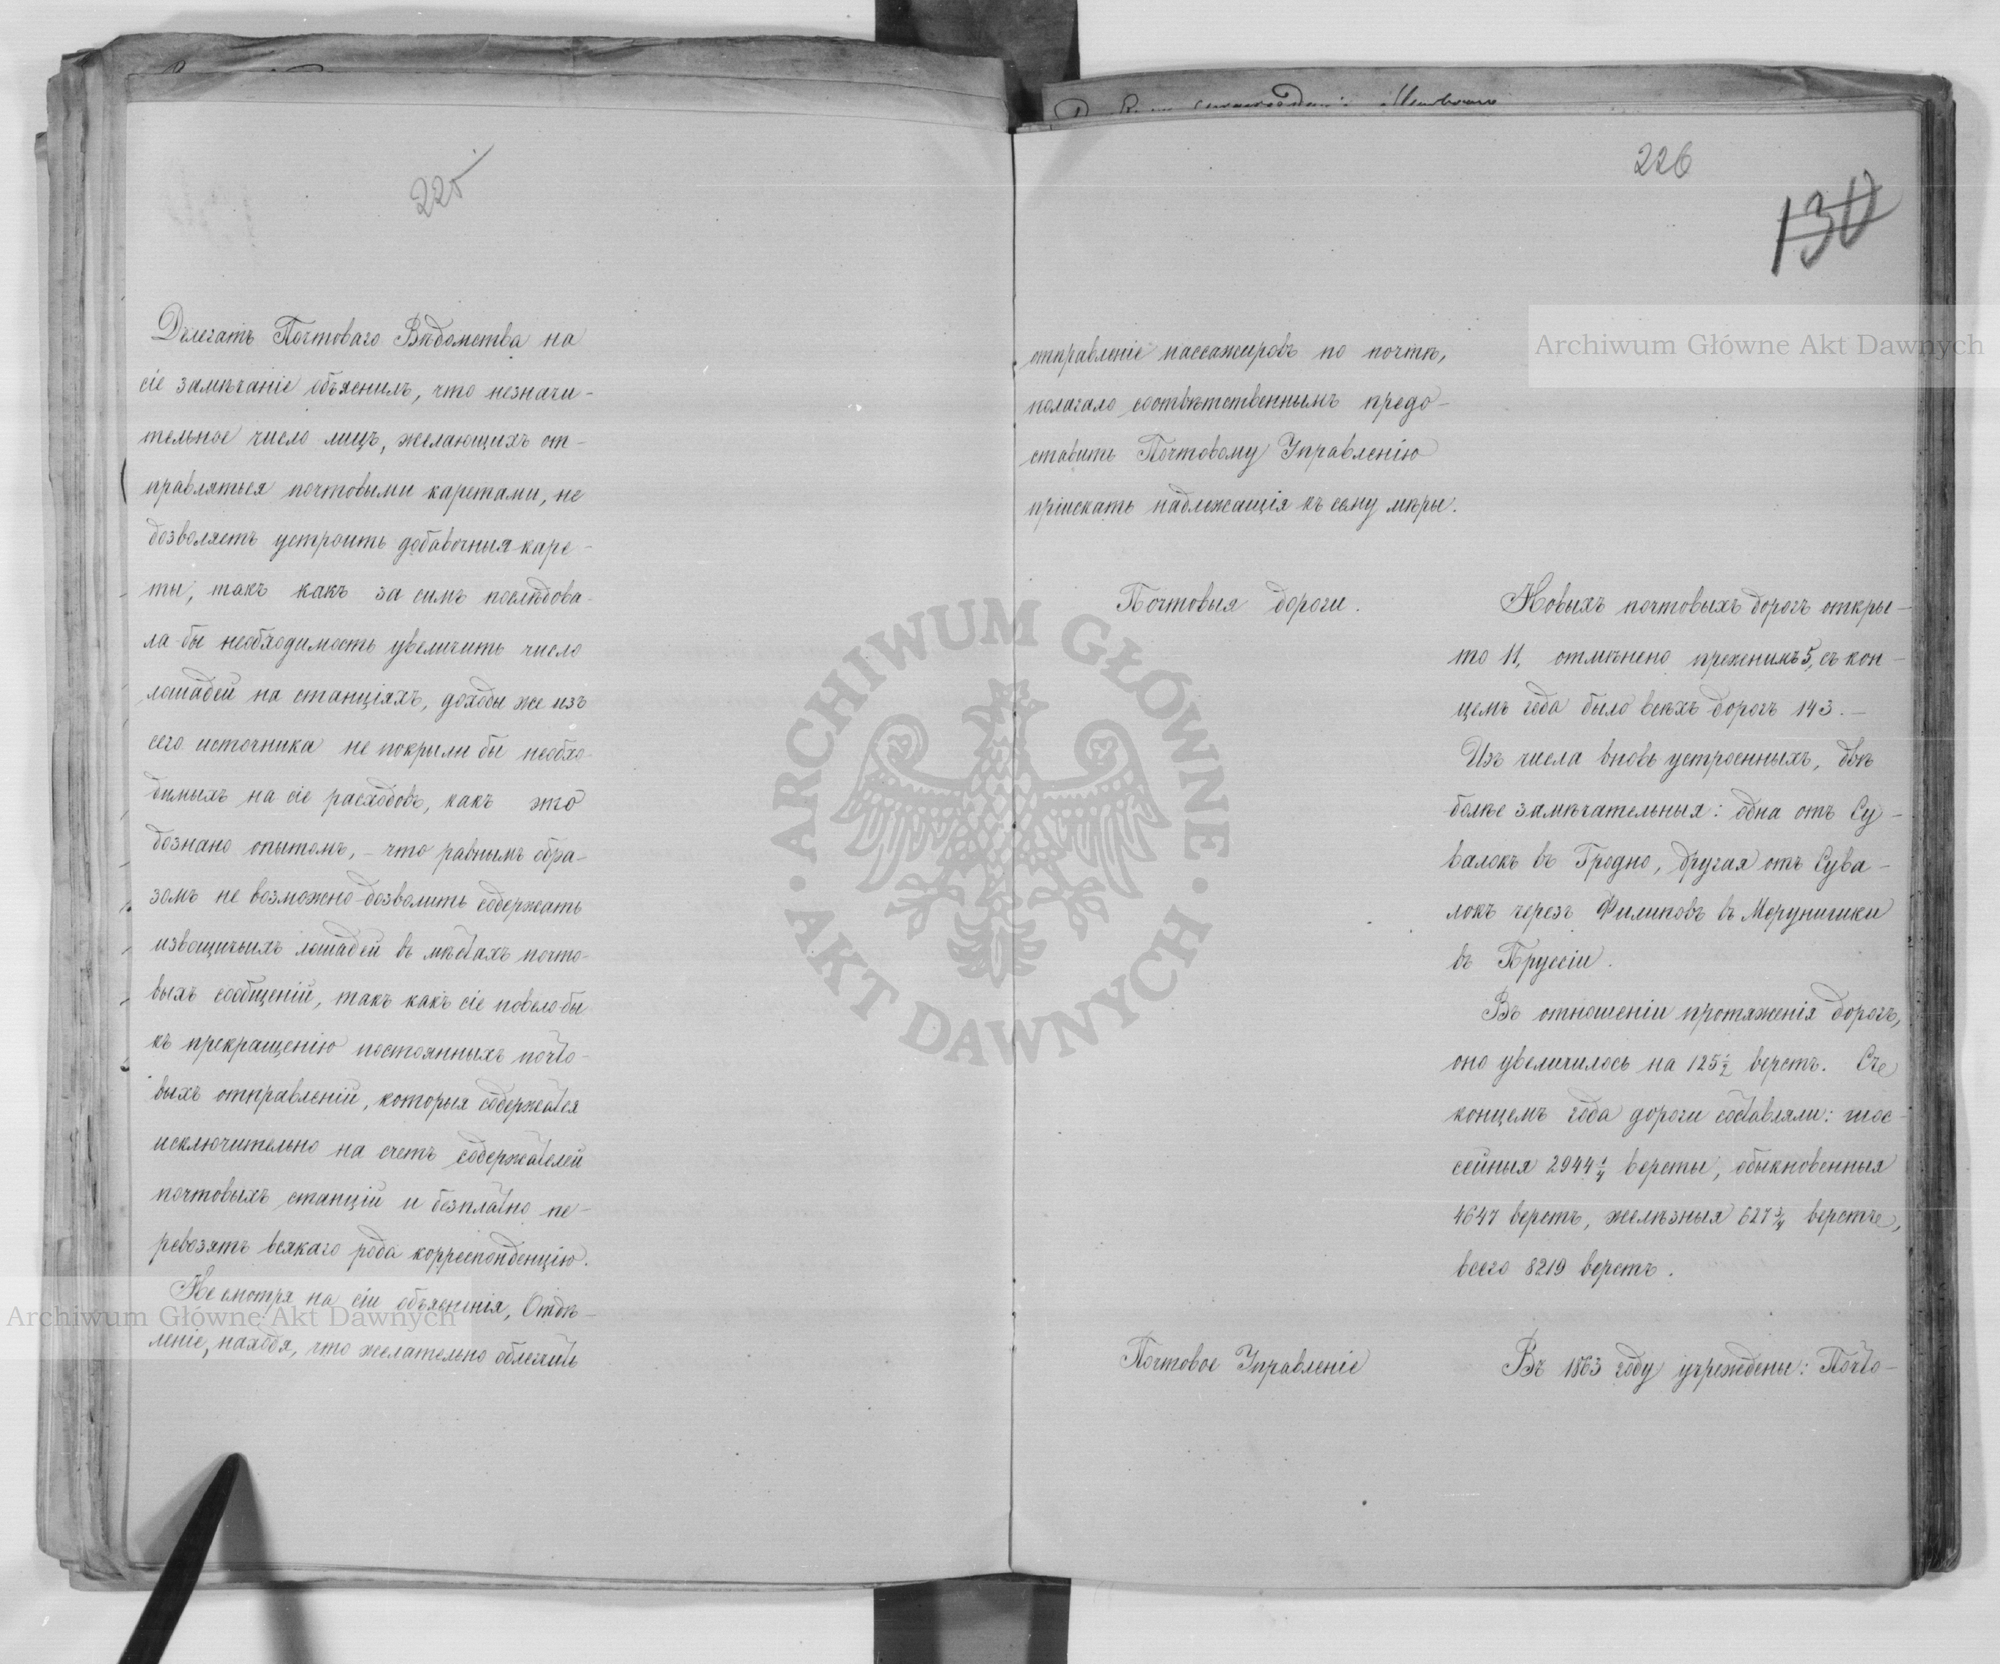 225
Делегатъ Почтоваго Вѣдомства на
сіе замѣчаніе объяснилъ, что незначи-
тельное число лицъ, желающихъ от-
правляться почтовыми каретами, не
дозволяетъ устроить добавочныя каре-
ты, такъ какъ за симъ послѣдова-
ла-бы необходимость увеличить число
лошадей на станціяхъ, доходы же изъ
сего источника не покрыли бы необхо-
димыхъ на сіе расходовъ, какъ это
дознано опытомъ, - что равнымъ обра-
зомъ не возможно дозволить содержать
извощичьихъ лошадей въ мѣстахъ почто-
выхъ сообщеній, такъ какъ сіе повело бы
къ прекращенію постоянныхъ почто-
выхъ отправленій, которыя содержатся
исключительно на счетъ содержателей
почтовыхъ станцій и безплатно пе-
ревозятъ всякаго рода корреспонденцію.
Не смотря на сіи объясненія, Отдѣ-
леніе, находя, что желательно облегчить
226
130
отправленіе пассажировъ по почтѣ,
полагало соотвѣтственнымъ предо-
ставить Почтовому Управленію
пріискать надлежащія къ сему мѣры.
Почтовыя дороги.
Новыхъ почтовыхъ дорогъ откры-
то 11, отмѣнено прежнихъ 5, съ кон-
цемъ года было всѣхъ дорогъ 143. -
Изъ числа вновь устроенныхъ, двѣ
болѣе замѣчательныя: одна отъ Су-
валокъ въ Гродно, другая отъ Сува-
локъ черезъ Филиповъ въ Мерунишки
въ Пруссіи.
Въ отношеніи протяженія дорогъ,
оно увеличилось на 125 1/2 верстъ. Съ
концемъ года дороги составляли: шос-
сейныя 2944 1/4 версты, обыкновенныя
4647 верстъ, желѣзныя 627 3/4 верстъ,
всего 8219 верстъ.
Почтовое Управленіе
Въ 1863 году учреждены: Почто-
Archiwum Główne Akt Dawnych
Archiwum Główne Akt Dawnych
ARCHIWUM GŁÓWNE
AKT DAWNYCH